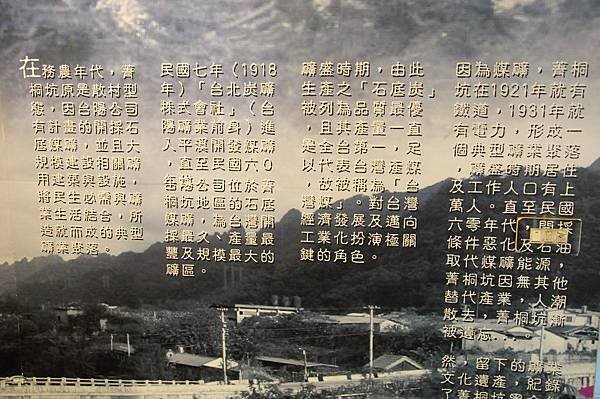 在務農年代，菁
桐坑原是散村型
態，因台陽公司
有計畫的開採石
底煤礦，並且大
規模建設相關礦
用建築與設施，
將民生必需與礦
業生活結合，所
造就而成的典型
礦業聚落。
民國七年（1918
年）「台北炭礦
株式會社」（台
陽礦業前身）進
入平溪開發煤礦
，直至民國六０
年
台陽公司位於菁
桐坑地區的石底
煤礦，為台灣開
採最久、產量最
豐及規模最大的
礦區。
礦盛時期，由此
生產之「石底炭」
被列為品質最優
，且其產量一直
是全台第一，足
以代表台灣產煤
，故被稱為「台
灣煤」。對台灣
經濟發展及邁向
工業化扮演極關
鍵的角色。
因為煤礦，菁桐
坑在1921年就有
鐵道，1931年就
有電力，形成一
個典型礦業聚落
，礦盛時期居住
及工作人口有上
萬人。直至民國
六零年代，開採
條件惡化及石油
取代煤礦能源，
菁桐坑因無其他
替代產業，人潮
散去，菁桐坑漸
被遺忘...。
然，留下的礦業
文化遺產，紀錄
了菁桐坑